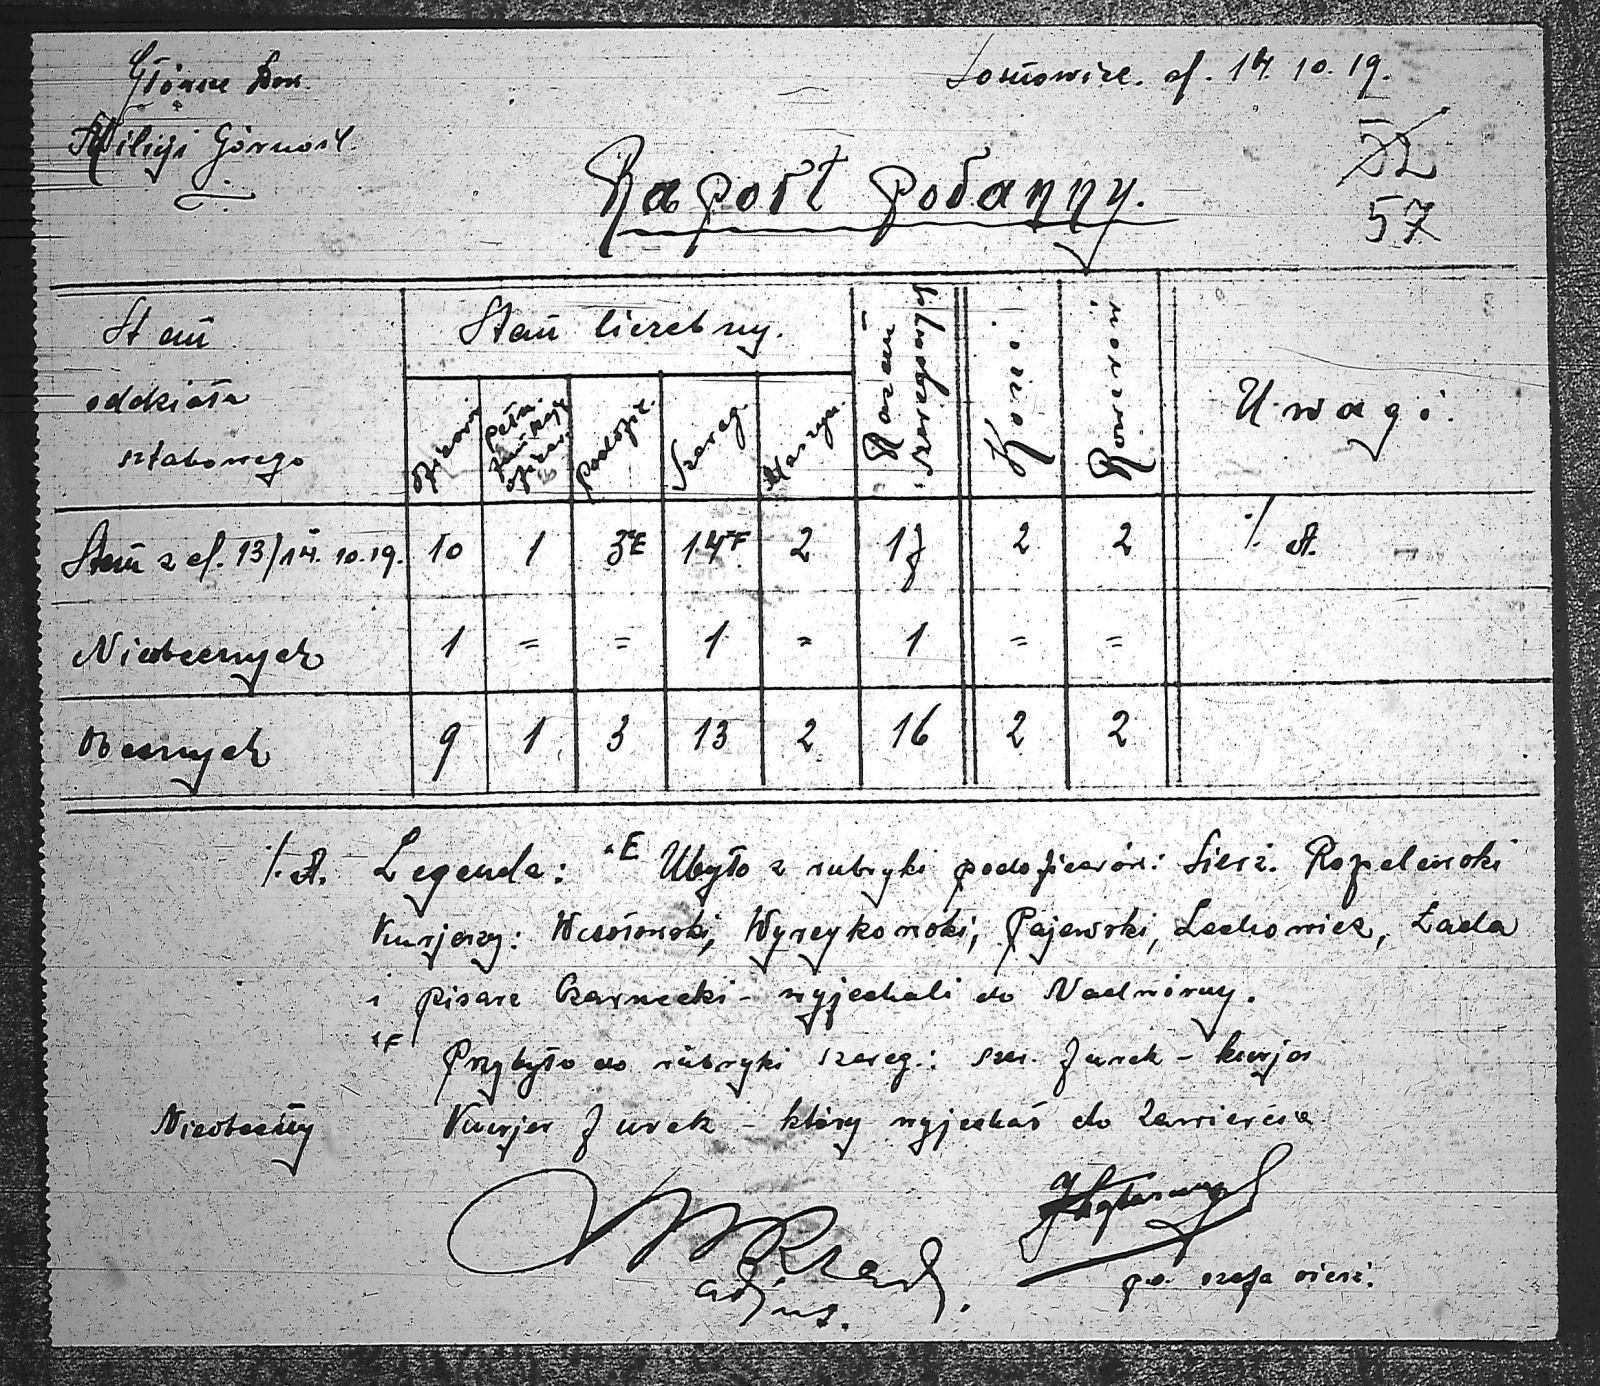 Główne Dow.
Milicji Górnośl.
Sosnowice. d. 14. 10. 19.
52
57
Raport poranny.
Stan
oddziału
sztabowego
Stan liczebny.
oficerów
pełn. funkcje oficer.
podofic.
Szereg.
Maszyn.
Razem
Koni
Powozów
Uwagi.
Stan z d. 13/14. 10. 19. 10 1 3*E 14*F 2 17 2 2 ·/. A.
Nieobecnych 1 = = 1 = 1 = =
Obecnych 9 1 3 13 2 16 2 2
·/. A. Legenda: *E Ubyło z rubryki podoficerów: Sierż. Rozalewski
Kurjerzy: Wesołowski, Wyrzykowski, Pajewski, Lechowicz, Łada
i pisarz Czarnecki – wyjechali do Nadwórny.
*F Przybyło do rubryki szereg.: szer. Jurek – kurjer
Nieobecny Kurjer Jurek – który wyjechał do Zawiercia
adjut.
po. szefa sierż.